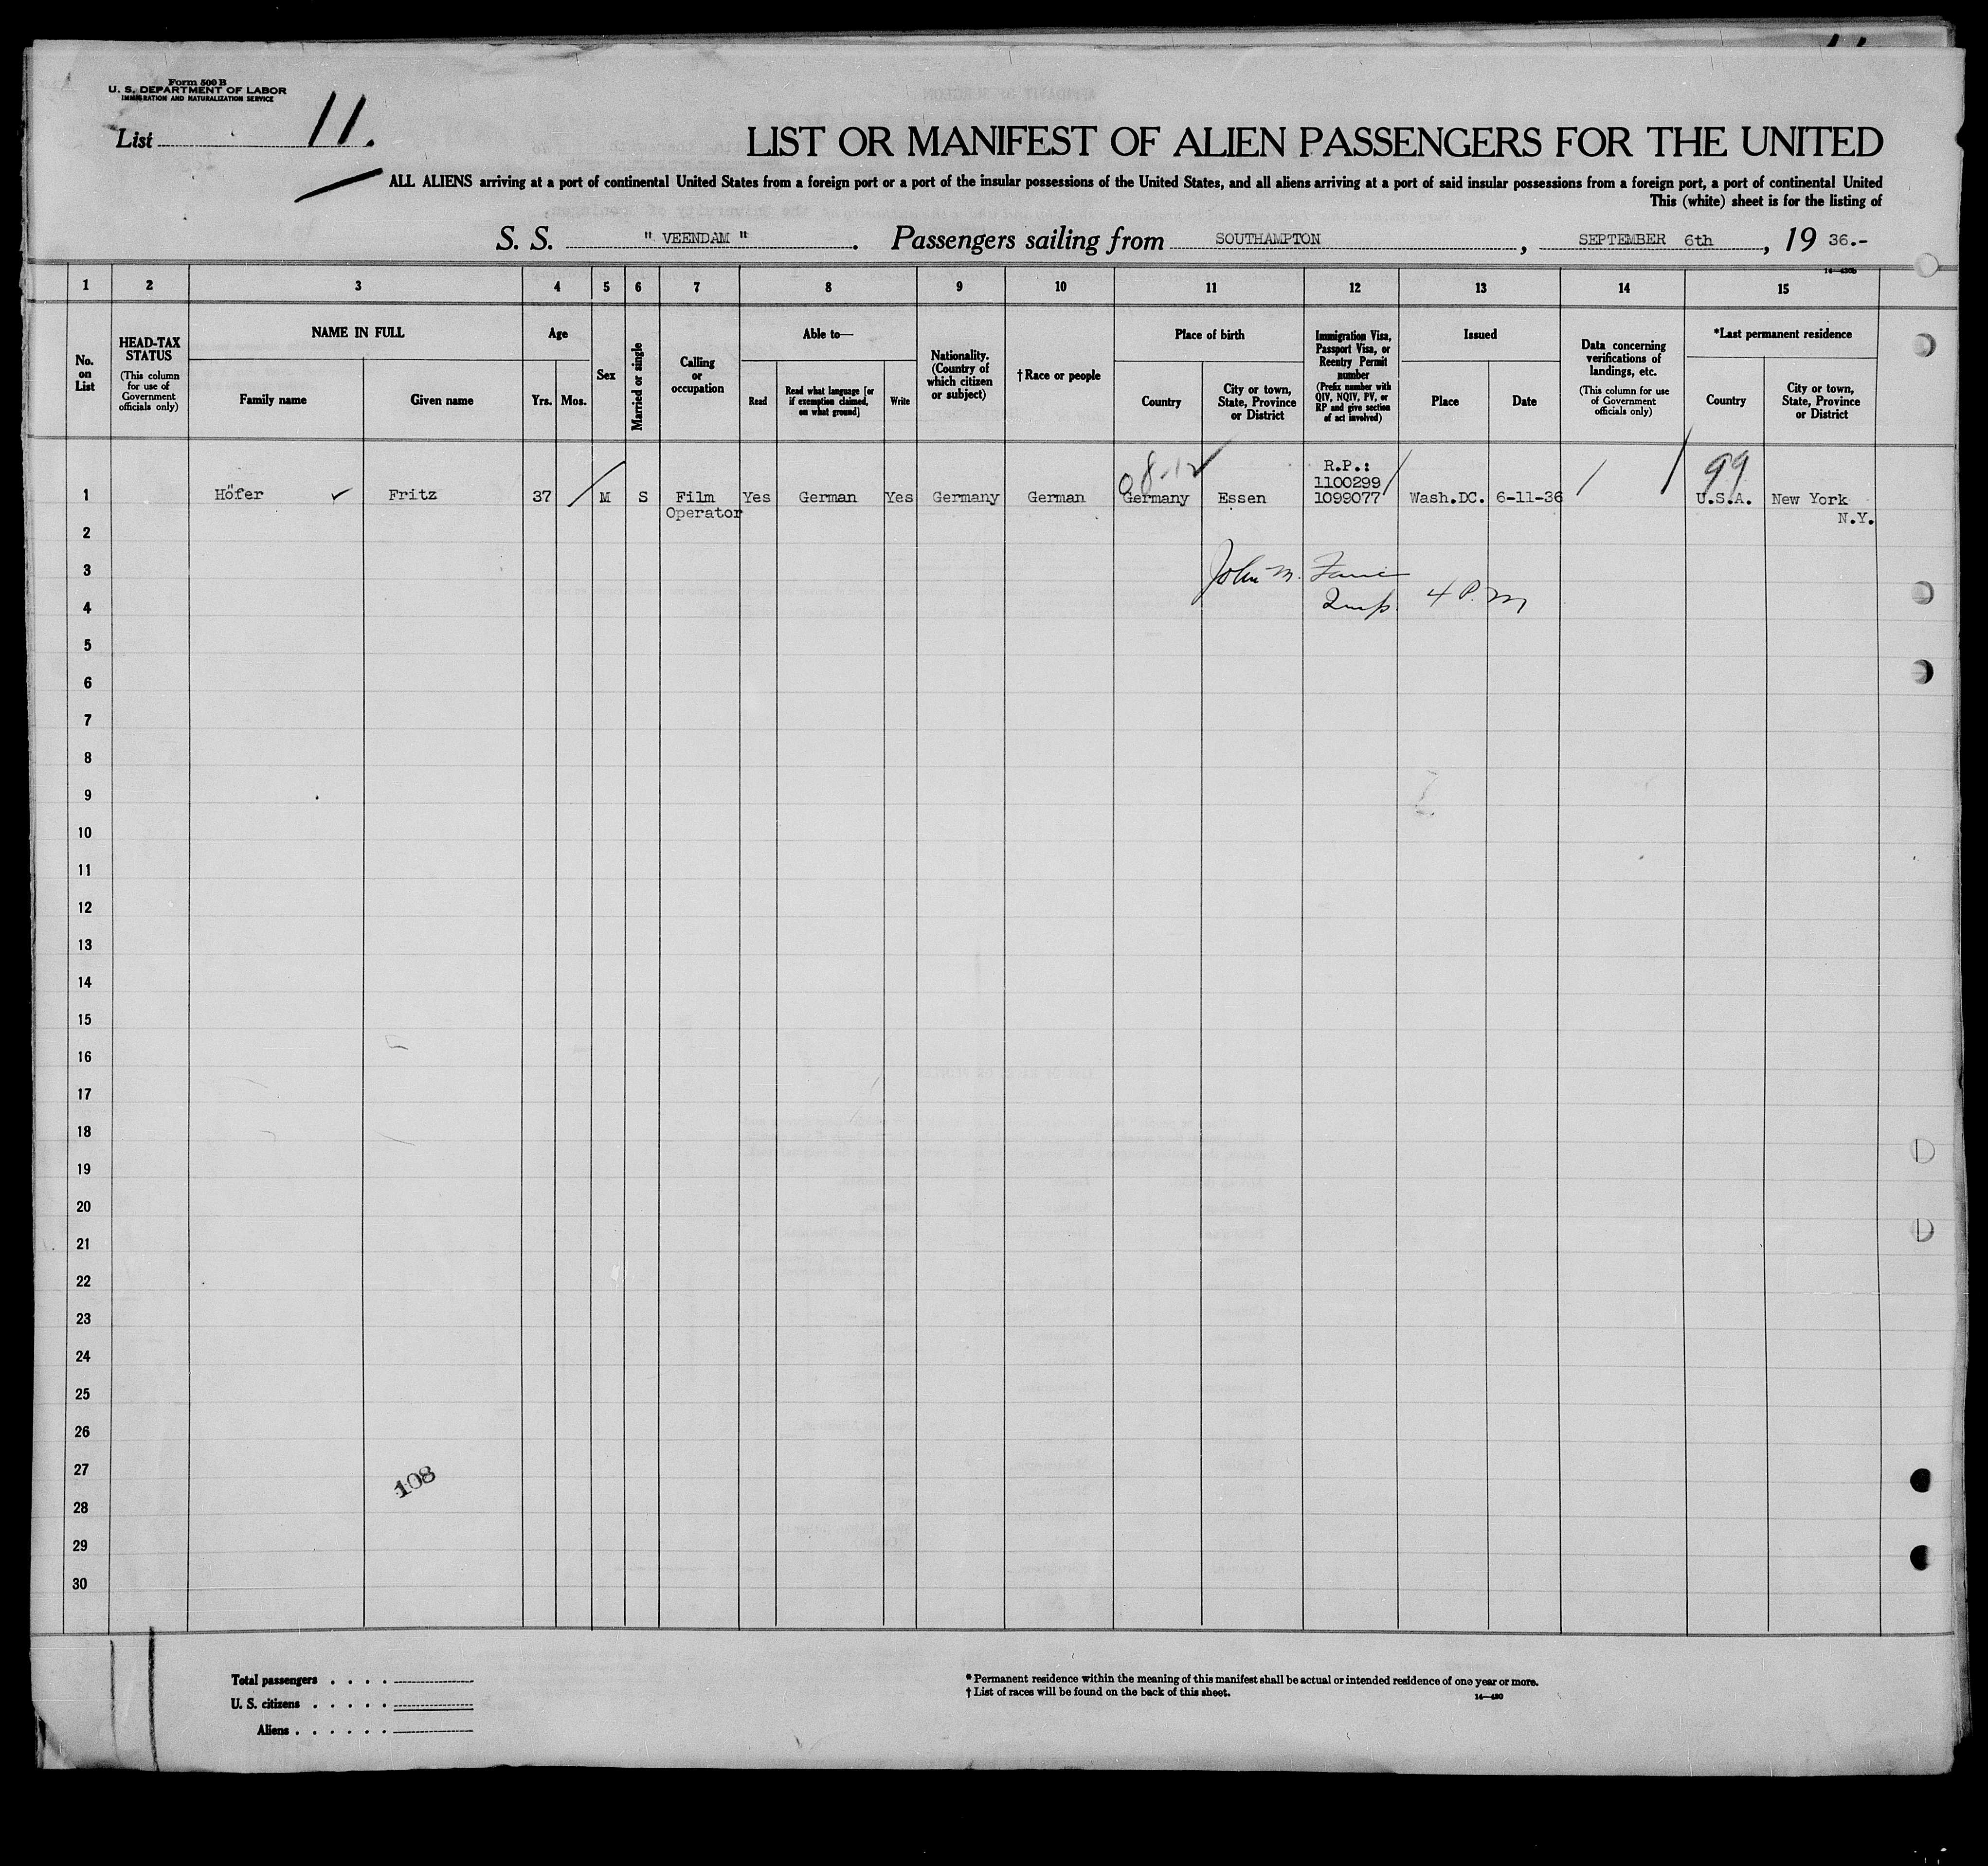 Form 500 B
U. S. DEPARTMENT OF LABOR
IMMIGRATION AND NATURALIZATION SERVICE
List 11.
LIST OR MANIFEST OF ALIEN PASSENGERS FOR THE UNITED
ALL ALIENS arriving at a port of continental United States from a foreign port or a port of the insular possessions of the United States, and all aliens arriving at a port of said insular possessions from a foreign port, a port of continental United
This (white) sheet is for the listing of
S. S. " VEENDAM ". Passengers sailing from SOUTHAMPTON, SEPTEMBER 6th, 19 36.-
14—430b
1 2 3 4 5 6 7 8 9 10 11 12 13 14 15
No. on List
HEAD-TAX STATUS
(This column for use of Government officials only)
NAME IN FULL
Family name
Given name
Age
Yrs.
Mos.
Sex
Married or single
Calling or occupation
Able to—
Read
Read what language [or if exemption claimed, on what ground]
Write
Nationality. (Country of which citizen or subject)
† Race or people
Place of birth
Country
City or town, State, Province or District
Immigration Visa, Passport Visa, or Reentry Permit number
(Prefix number with QIV, NQIV, PV, or RP and give section of act involved)
Issued
Place
Date
Data concerning verifications of landings, etc.
(This column for use of Government officials only)
*Last permanent residence
Country
City or town, State, Province or District
08-12
99
R.P.:
1100299
1 Höfer ✓ Fritz 37 M S Film Yes German Yes Germany German Germany Essen 1099077 Wash.DC. 6-11-36 U.S.A. New York
Operator N.Y.
2
3 John M.
4 4 P.M
5
6
7
8
9
10
11
12
13
14
15
16
17
18
19
20
21
22
23
24
25
26
27
108
28
29
30
Total passengers . . . .
U. S. citizens . . . . .
Aliens . . . . . .
* Permanent residence within the meaning of this manifest shall be actual or intended residence of one year or more.
† List of races will be found on the back of this sheet.
14—430